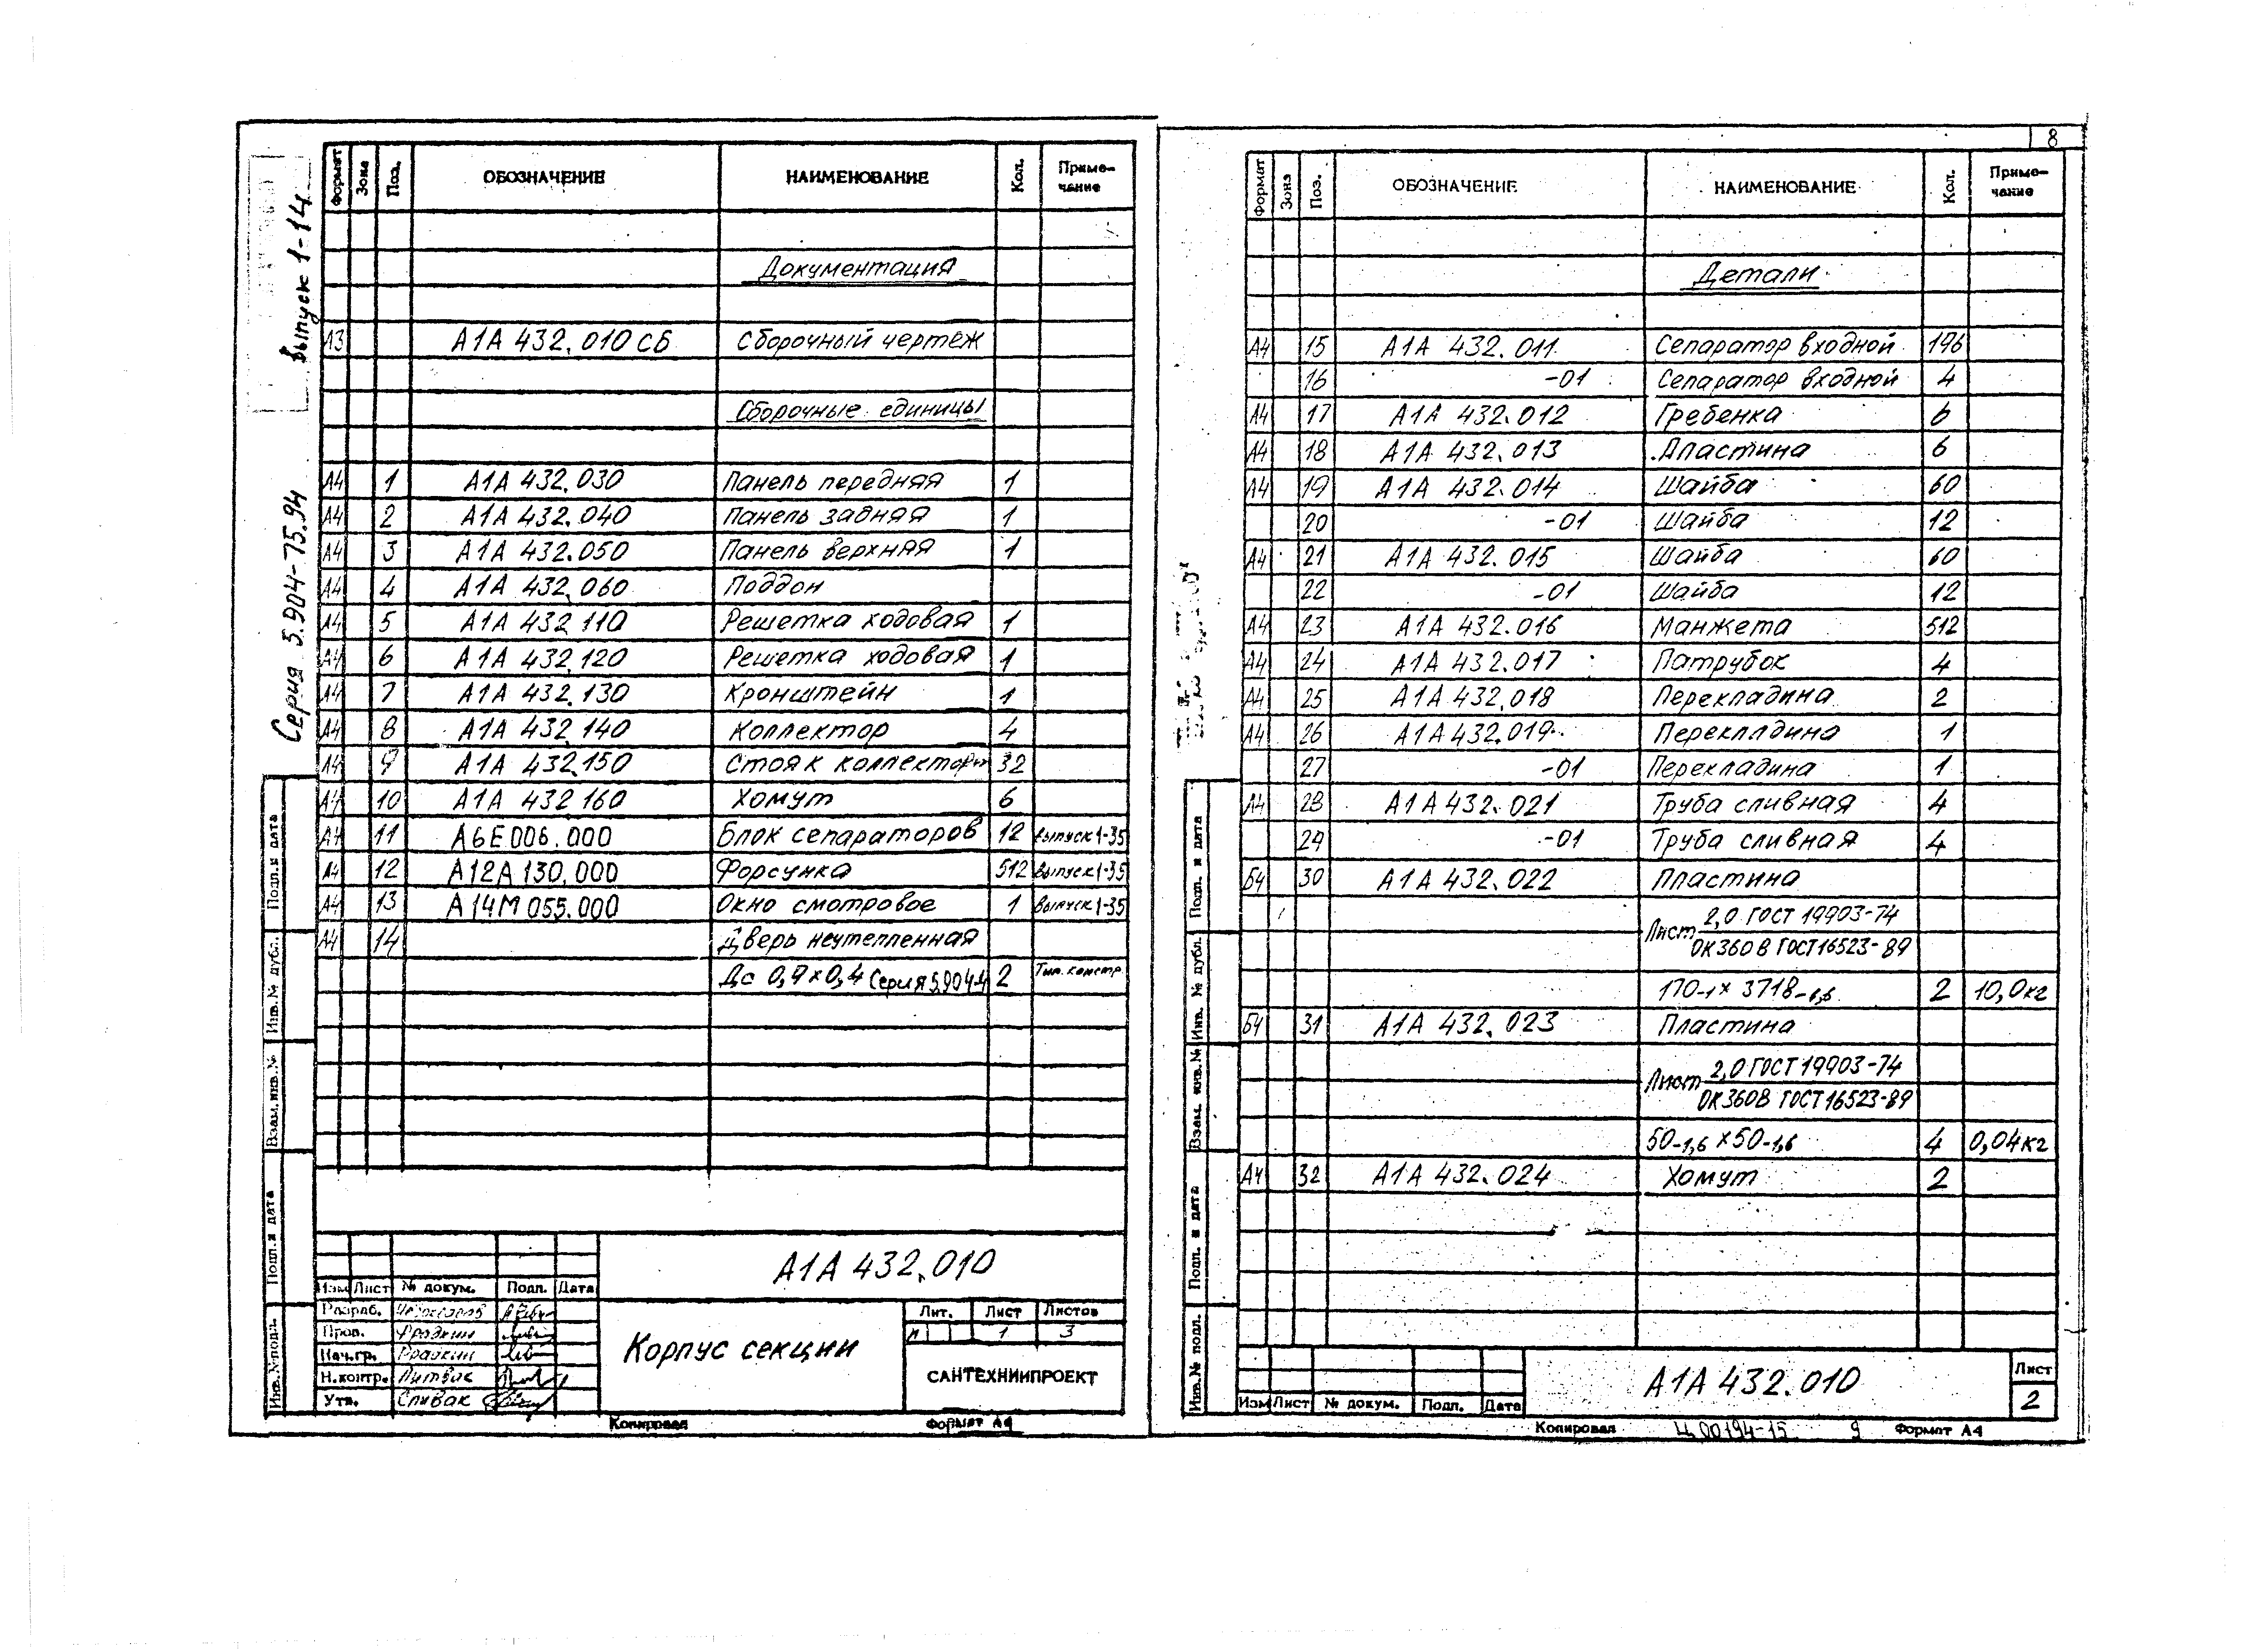 Серия 5.904-75.94 выпуск 1-14
Формат Зона Поз. ОБОЗНАЧЕНИЕ НАИМЕНОВАНИЕ Кол. Приме-
чание
Документация
А3 А1А 432.010 СБ Сборочный чертеж
Сборочные единицы
А4 1 А1А 432.030 Панель передняя 1
А4 2 А1А 432.040 Панель задняя 1
А4 3 А1А 432.050 Панель верхняя 1
А4 4 А1А 432.060 Поддон
А4 5 А1А 432.110 Решетка ходовая 1
А4 6 А1А 432.120 Решетка ходовая 1
А4 7 А1А 432.130 Кронштейн 1
А4 8 А1А 432.140 Коллектор 4
А4 9 А1А 432.150 Стояк коллектора 32
А4 10 А1А 432 160 Хомут 6
А4 11 А6Е 006.000 Блок сепараторов 12 выпуск 1-35
А4 12 А12А 130.000 Форсунка 512 выпуск 1-35
А4 13 А14М 055.000 Окно смотровое 1 выпуск 1-35
А4 14 Дверь неутепленная
Ду 0,9×0,4 Серия 5.904-4 2 Тип. констр.
А1А 432.010
Изм Лист № докум. Подп. Дата
Разраб.
Пров. Фрадкин
Нач.гр. Фрадкин
Н.контр. Литвас
Утв. Спивак
Корпус секции
Лит. Лист Листов
И 1 3
САНТЕХНИИПРОЕКТ
Копировал Формат А4
Подп. и дата
Инв. № дубл.
Взам. инв. №
Подп. и дата
Инв. № подл.
8
Формат Зона Поз. ОБОЗНАЧЕНИЕ НАИМЕНОВАНИЕ Кол. Приме-
чание
Детали
А4 15 А1А 432.011 Сепаратор входной 196
16 -01 Сепаратор входной 4
А4 17 А1А 432.012 Гребенка 6
А4 18 А1А 432.013 Пластина 6
А4 19 А1А 432.014 Шайба 60
20 -01 Шайба 12
А4 21 А1А 432.015 Шайба 60
22 -01 Шайба 12
А4 23 А1А 432.016 Манжета 512
А4 24 А1А 432.017 Патрубок 4
А4 25 А1А 432.018 Перекладина 2
А4 26 А1А 432.019 Перекладина 1
27 -01 Перекладина 1
А4 28 А1А 432.021 Труба сливная 4
29 -01 Труба сливная 4
Б4 30 А1А 432.022 Пластина
Лист 2,0 ГОСТ 19903-74
ОК360В ГОСТ16523-89
170-1 × 3718-1,6 2 10,0кг
Б4 31 А1А 432.023 Пластина
Лист 2,0 ГОСТ 19903-74
ОК360В ГОСТ16523-89
50-1,6 × 50-1,6 4 0,04кг
А4 32 А1А 432.024 Хомут 2
Изм Лист № докум. Подп. Дата
А1А 432.010
Лист
2
Копировал Ц.00194-15 9 Формат А4
Подп. и дата
Инв. № дубл.
Взам. инв. №
Подп. и дата
Инв. № подл.